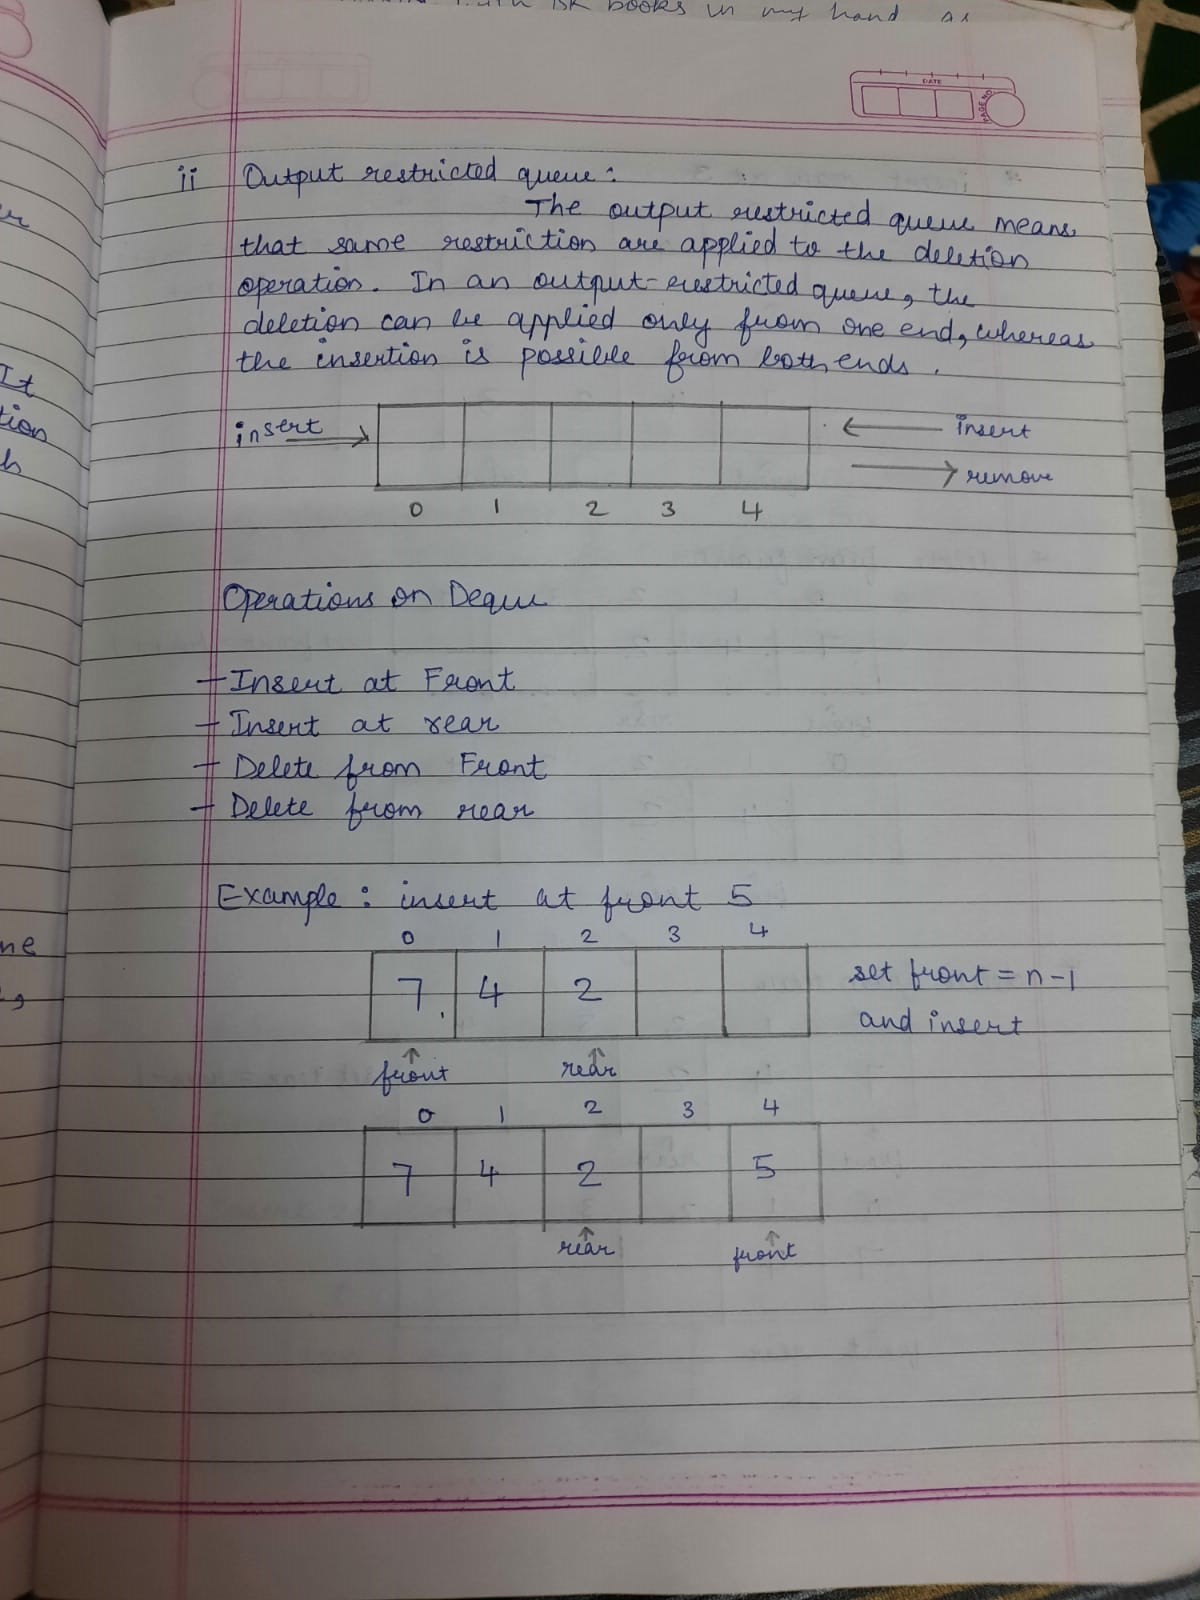 books in my hand as
DATE
PAGE NO.
ii Output restricted queue:
The output restricted queue means
that same restriction are applied to the deletion
operation. In an output-restricted queue, the
deletion can be applied only from one end, whereas
the insertion is possible from both ends.
insert
insert
remove
0 1 2 3 4
Operations on Deque
- Insert at Front
- Insert at rear
- Delete from Front
- Delete from rear
Example: insert at front 5
0 1 2 3 4
7 4 2
set front = n-1
and insert
front rear
0 1 2 3 4
7 4 2 5
rear front
It
tion